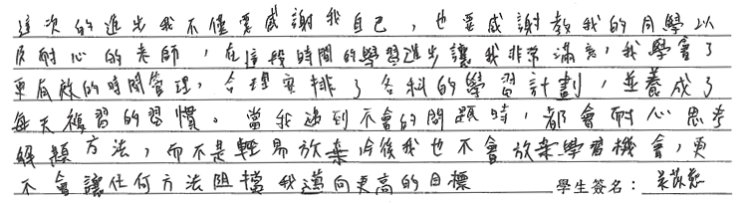 這次的進步我不僅要感謝我自己，也要感謝教我的同學以
及耐心的老師，在這段時間的學習進步讓我非常滿意，我學會了
更有效的時間管理，合理安排了各科的學習計劃，並養成了
每天複習的習慣。當我遇到不會的問題時，都會耐心思考
解題方法，而不是輕易放棄今後我也不會放棄學習機會，更
不會讓任何方法阻擋我邁向更高的目標 學生簽名：